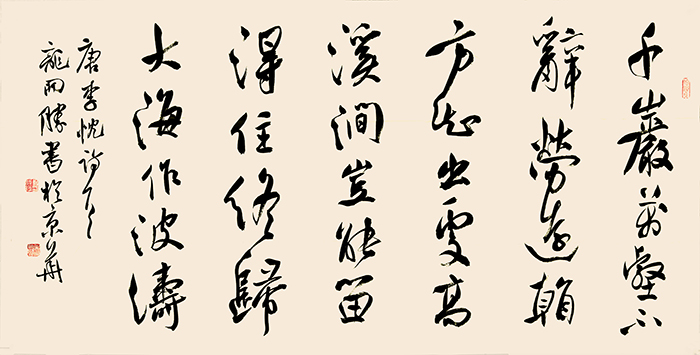 千巖萬壑不
辭勞遠看
方知出處高
溪澗豈能留
得住終歸
大海作波濤
唐李忱詩
龍開勝書於京華